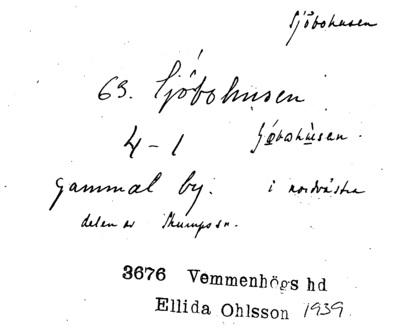 Sjöbohusen
63. Sjöbohusen
4-1 Sjöbohusen.
gammal by. i nordvästra
delen av Skurups sn.
3676 Vemmenhögs hd
Ellida Ohlsson 1939.